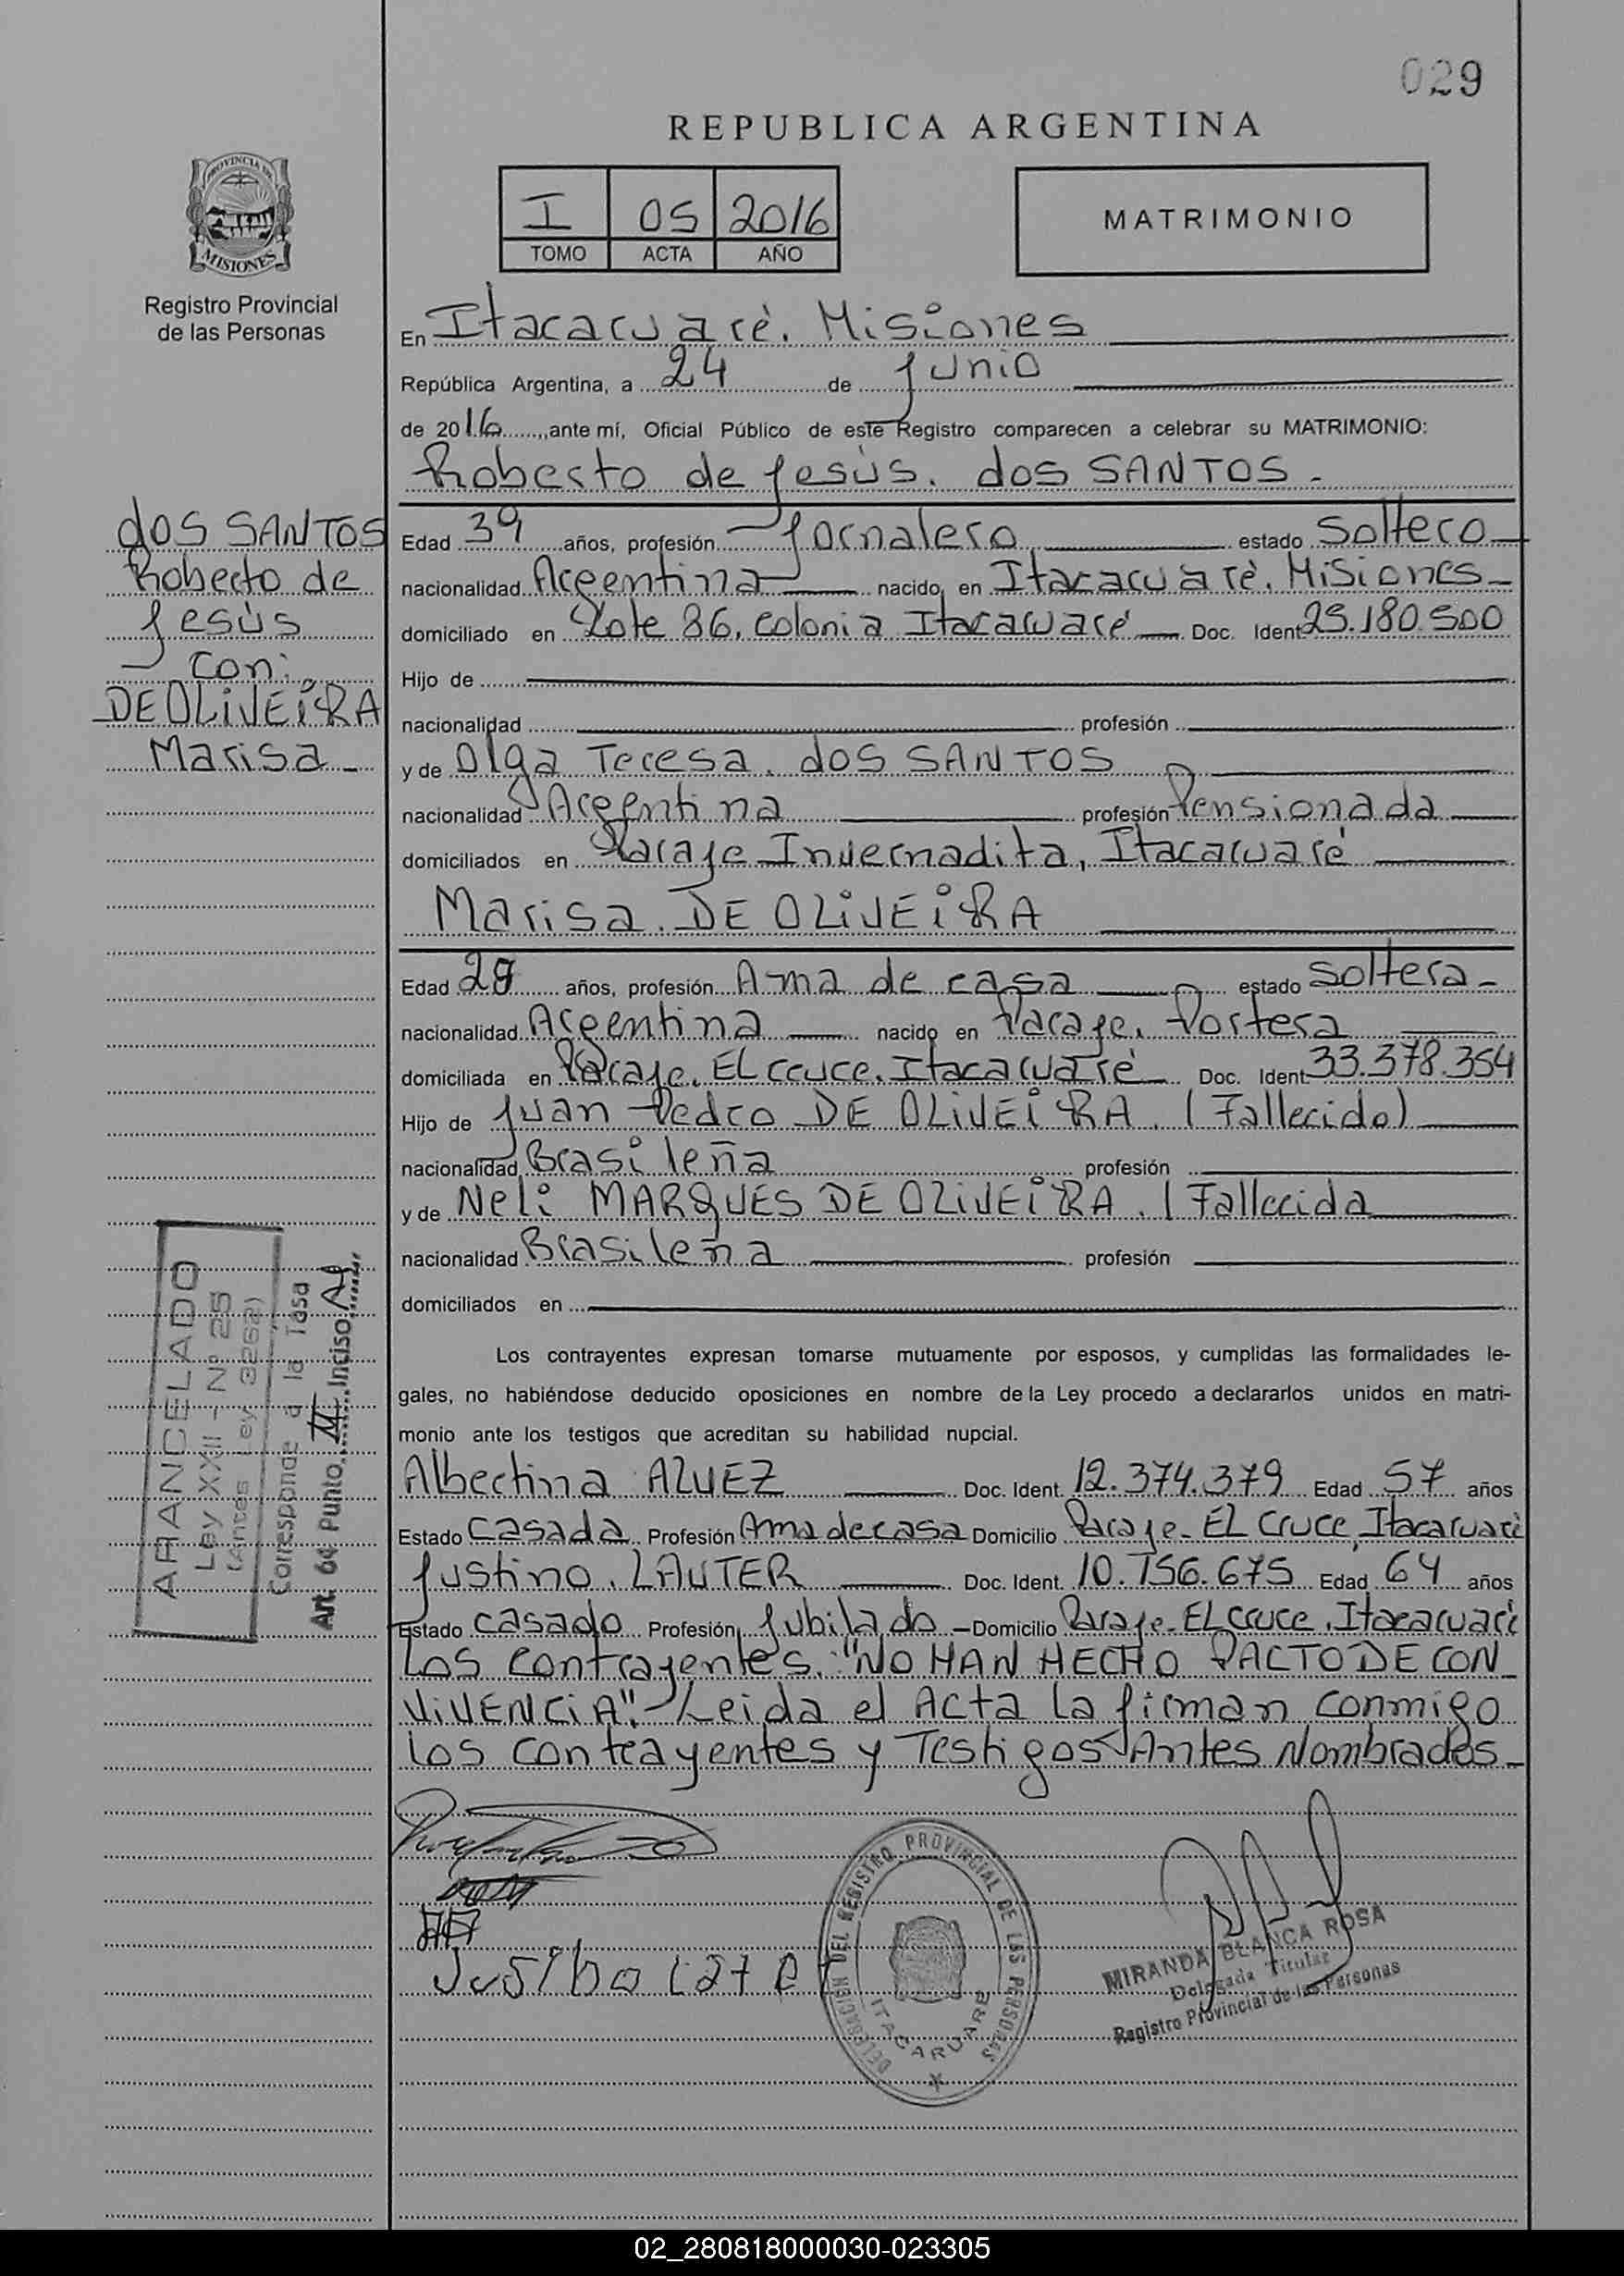 029
REPUBLICA ARGENTINA
PROVINCIA DE
MISIONES
Registro Provincial
de las Personas
I 05 2016
TOMO ACTA AÑO
MATRIMONIO
En Itacaruaré. Misiones
República Argentina, a 24 de Junio
de 2016, ante mí, Oficial Público de este Registro comparecen a celebrar su MATRIMONIO:
Roberto de Jesús. dos SANTOS -
dos SANTOS
Roberto de
Jesús
con:
DE OLiVEiRA
Marisa -
Edad 39 años, profesión Jornalero estado Soltero
nacionalidad Argentina nacido en Itacaruaré. Misiones
domiciliado en Lote 86. Colonia Itacaruaré Doc. Ident 25.180.500
Hijo de
nacionalidad profesión
y de Olga Teresa. dos SANTOS
nacionalidad Argentina profesión Pensionada
domiciliados en Paraje Invernadita, Itacaruaré
Marisa. DE OLiVEiRA
Edad 29 años, profesión Ama de casa estado Soltera -
nacionalidad Argentina nacido en Paraje. Portera
domiciliada en Paraje. EL Cruce. Itacaruaré Doc. Ident 33.378.354
Hijo de Juan Pedro DE OLiVEiRA. (Fallecido)
nacionalidad Brasileña profesión
y de Neli MARQUES DE OLiVEiRA. (Fallecida
nacionalidad Brasileña profesión
domiciliados en
Los contrayentes expresan tomarse mutuamente por esposos, y cumplidas las formalidades le-
gales, no habiéndose deducido oposiciones en nombre de la Ley procedo a declararlos unidos en matri-
monio ante los testigos que acreditan su habilidad nupcial.
Albertina ALVEZ Doc. Ident. 12.374.379 Edad 57 años
Estado Casada Profesión Ama de casa Domicilio Paraje- EL Cruce, Itacaruaré
Justino. LAUTER Doc. Ident. 10.756.675 Edad 64 años
Estado Casado Profesión Jubilado - Domicilio Paraje- EL Cruce. Itacaruaré
Los contrayentes. "NO HAN HECHO PACTO DE CON
ViVENCiA". - Leida el Acta la firman conmigo
los contrayentes y Testigos Antes Nombrados -
ARANCELADO
Ley XXII - Nº 25
(Antes Ley 3262)
Corresponde a la Tasa
Art. 64 Punto Inciso
DELEGACION DEL REGISTRO PROVINCIAL DE LAS PERSONAS
ITACARUARE
MIRANDA BLANCA ROSA
Delegada Titular
Registro Provincial de las Personas
02_280818000030-023305